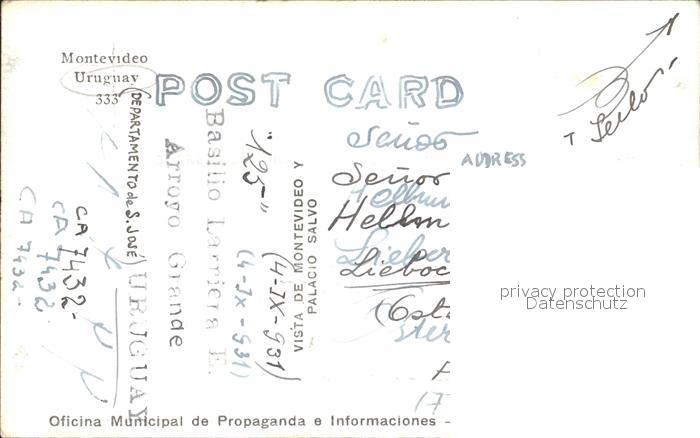 Montevideo
Uruguay
333
POST CARD
ADDRESS
Señor
Señor
Hellm
Lieber
Lieboc
(Ost
ster
(7
VISTA DE MONTEVIDEO Y
PALACIO SALVO
"125-"
(4-IX-931)
(4-IX-931)
Basilio Larriera E.
Arroyo Grande
(DEPARTAMENTO de S. JOSÉ)
URUGUAY
CA 7432-
CA 7432
CA 7432-
privacy protection
Datenschutz
Oficina Municipal de Propaganda e Informaciones -